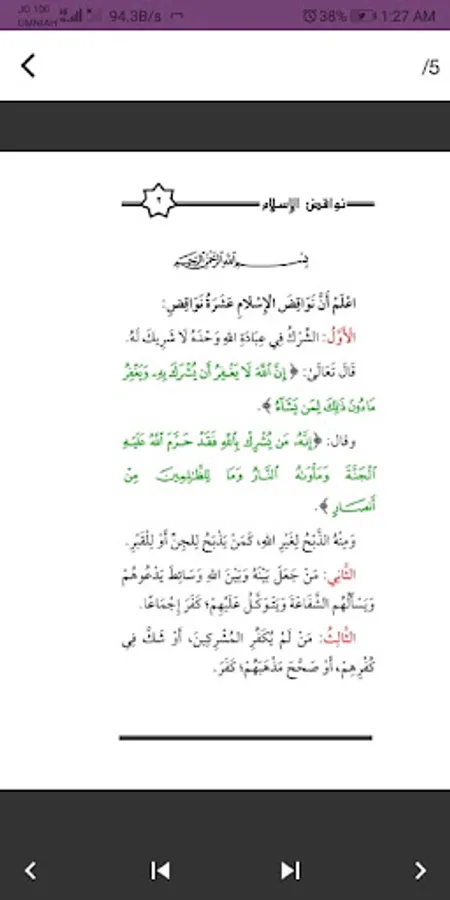 JO 100
UMNIAH
94.3B/s
38%
1:27 AM
/5
نواقض الإسلام
٢
بِسْمِ اللَّهِ الرَّحْمَنِ الرَّحِيمِ
اعْلَمْ أَنَّ نَوَاقِضَ الْإِسْلَامِ عَشَرَةُ نَوَاقِضَ:
الْأَوَّلُ: الشِّرْكُ فِي عِبَادَةِ اللهِ وَحْدَهُ لَا شَرِيكَ لَهُ.
قَالَ تَعَالَىٰ: ﴿إِنَّ ٱللَّهَ لَا يَغْفِرُ أَن يُشْرَكَ بِهِۦ وَيَغْفِرُ
مَا دُونَ ذَٰلِكَ لِمَن يَشَآءُ﴾.
وقال: ﴿إِنَّهُۥ مَن يُشْرِكْ بِٱللَّهِ فَقَدْ حَرَّمَ ٱللَّهُ عَلَيْهِ
ٱلْجَنَّةَ وَمَأْوَىٰهُ ٱلنَّارُ وَمَا لِلظَّٰلِمِينَ مِنْ
أَنصَارٍ﴾.
وَمِنْهُ الذَّبْحُ لِغَيْرِ اللهِ، كَمَنْ يَذْبَحُ لِلْجِنِّ أَوْ لِلْقَبْرِ.
الثَّانِي: مَنْ جَعَلَ بَيْنَهُ وَبَيْنَ اللهِ وَسَائِطَ يَدْعُوهُمْ
وَيَسْأَلُهُم الشَّفَاعَةَ وَيَتَوَكَّلُ عَلَيْهِمْ؛ كَفَرَ إِجْمَاعًا.
الثَّالِثُ: مَنْ لَمْ يُكَفِّرِ المُشْرِكِينَ، أَوْ شَكَّ فِي
كُفْرِهِمْ، أَوْ صَحَّحَ مَذْهَبَهُمْ؛ كَفَرَ.